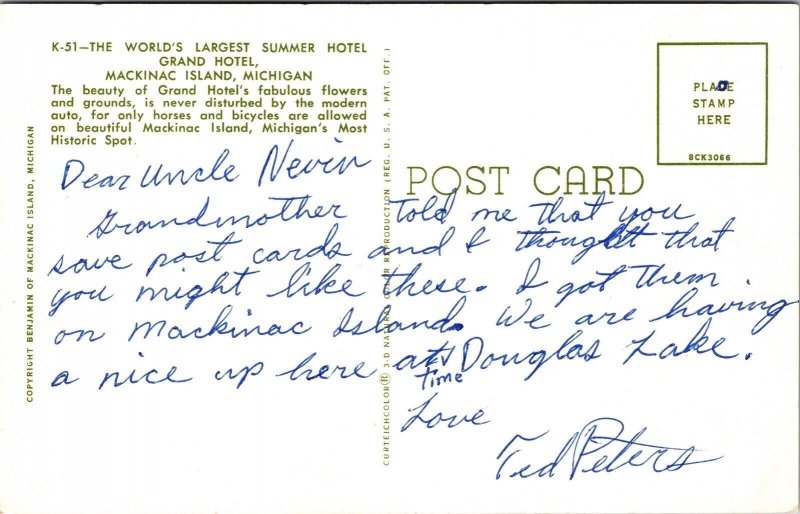 K-51—THE WORLD'S LARGEST SUMMER HOTEL
GRAND HOTEL,
MACKINAC ISLAND, MICHIGAN
The beauty of Grand Hotel's fabulous flowers
and grounds, is never disturbed by the modern
auto, for only horses and bicycles are allowed
on beautiful Mackinac Island, Michigan's Most
Historic Spot.
COPYRIGHT BENJAMIN OF MACKINAC ISLAND, MICHIGAN
CURTEICHCOLOR® 3-D NATURAL COLOR REPRODUCTION (REG. U. S. A. PAT. OFF.)
POST CARD
PLACE
STAMP
HERE
8CK3066
Dear Uncle Nevin
Grandmother told me that you
save post cards and I thought that
you might like these. I got them
on Mackinac Island. We are having
a nice up here at Douglas Lake.
Time
Love
Ted Peters